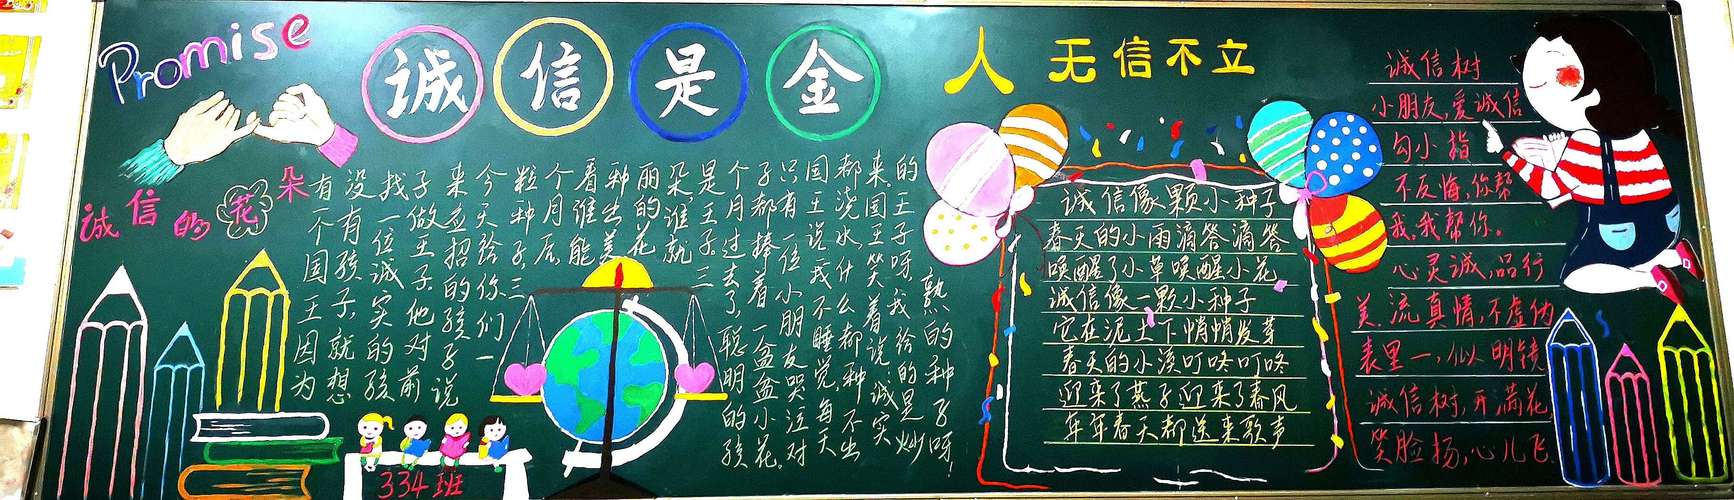 Promise
诚信是金
人无信不立
诚信的花朵
有个国王因为
没有孩子,就想
找一位诚实的孩
子做王子.他对前
来应招的孩子说
今天给你们一
粒种子,三
个月后,
看谁能
种出美
丽的花
朵,谁就
是王子.三
个月过去了,聪明的孩
子都捧着一盆盆小花.
只有一位小朋友哭泣,对
国王说我不睡觉,每天
都浇水,什么都种不出
来.国王笑着说诚实
的王子呀,我给的是炒
熟的种子呀!
334班
诚信像颗小种子
春天的小雨滴答滴答
唤醒了小草唤醒小花
诚信像一颗小种子
它在泥土下悄悄发芽
春天的小溪叮咚叮咚
迎来了燕子迎来了春风
年年春天都送来歌声
诚信树
小朋友,爱诚信
勾小指
不反悔,你帮
我,我帮你。
心灵诚,品行
美,流真情,不虚伪
表里一,似明镜
诚信树,开满花,
笑脸扬,心儿飞.